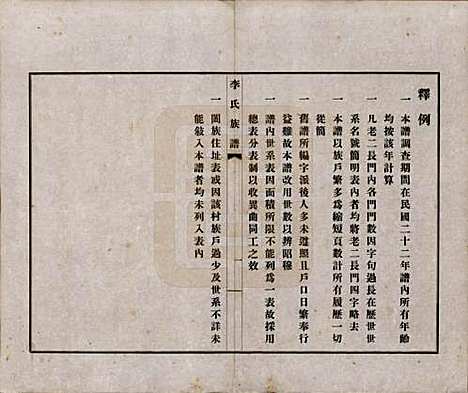 釋例
一本譜調查期間在民國二十二年譜內所有年齡
均按該年計算
一凡老二長門內各門門數因字句過長在歷世世
系名號簡明表內者均將老二長門四字略去
一本譜以族戶繁多爲縮短頁數計所有履歷一切
從簡
一舊譜所編字派後人多未遵照且戶口日繁奉行
益難故本譜改用世數以辨昭穆
一譜內世系表因面積所限不能列爲一表故採用
總表分表制以收異曲同工之效
李氏族譜
一闔族住址表或因該村族戶過少及世系不詳未
能敍入本譜者均未列入表內